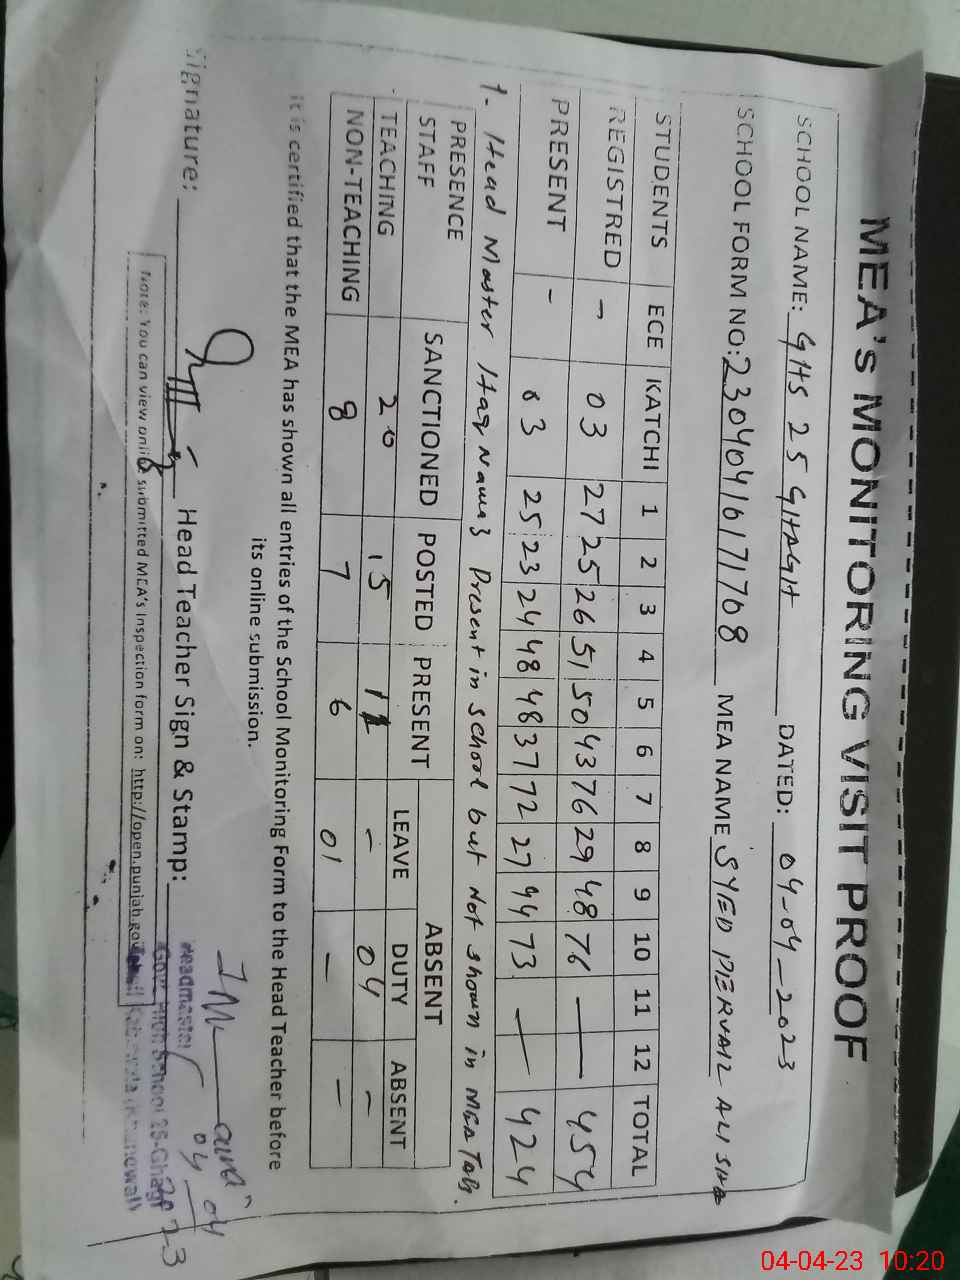 MEA's MONITORING VISIT PROOF
SCHOOL NAME: GHS 25 GHAGH DATED: 04-04-2023
SCHOOL FORM NO: 23040416171708 MEA NAME SYED PERVAIZ ALI SHA
STUDENTS ECE KATCHI 1 2 3 4 5 6 7 8 9 10 11 12 TOTAL
REGISTRED - 03 27 25 26 51 50 43 76 29 48 76 — 454
PRESENT - 03 25 23 24 48 48 37 72 27 44 73 — 424
1- Head Master Haq Nawaz Present in school but Not shown in MEA Tab.
PRESENCE STAFF SANCTIONED POSTED PRESENT ABSENT
LEAVE DUTY ABSENT
TEACHING 20 15 11 - 04 -
NON-TEACHING 8 7 6 01 - -
it is certified that the MEA has shown all entries of the School Monitoring Form to the Head Teacher before
its online submission.
Signature: Head Teacher Sign & Stamp:
04 04 2023
Headmaster
Govt. High School 25-Ghagh
Note: You can view online submitted MEA's Inspection form on: http://open.punjab.gov
04-04-23 10:20